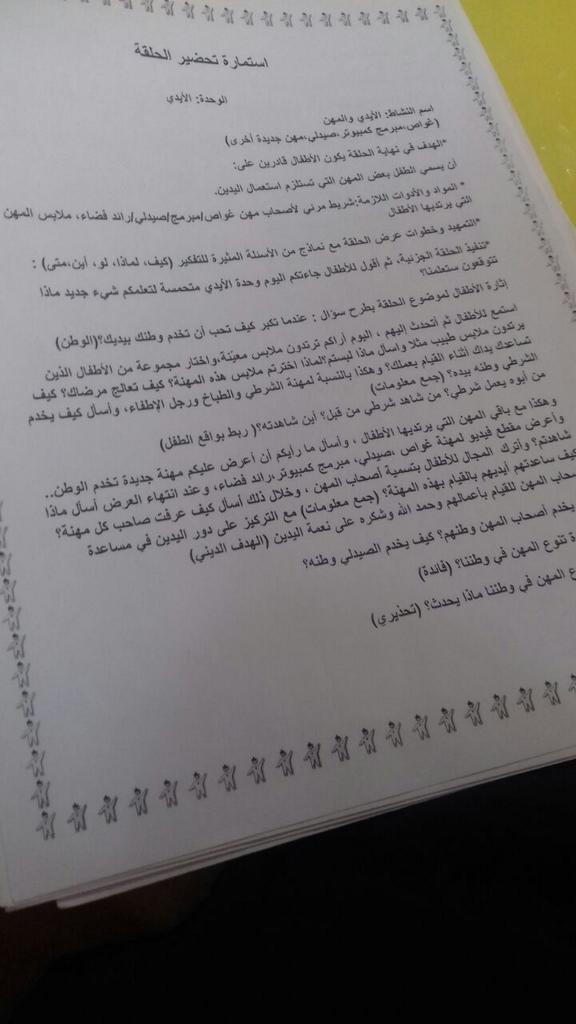 استمارة تحضير الحلقة
الوحدة: الأيدي
اسم النشاط: الأيدي والمهن
(غواص،مبرمج كمبيوتر،صيدلي،مهن جديدة أخرى)
*الهدف في نهاية الحلقة يكون الأطفال قادرين على:
أن يسمي الطفل بعض المهن التي تستلزم استعمال اليدين.
* المواد والأدوات اللازمة:شريط مرئي لأصحاب مهن غواص/مبرمج/صيدلي/رائد فضاء، ملابس المهن
التي يرتديها الأطفال
*التمهيد وخطوات عرض الحلقة مع نماذج من الأسئلة المثيرة للتفكير (كيف، لماذا، لو، أين،متى) :
*تنفيذ الحلقة الجزئية، ثم أقول للأطفال جاءتكم اليوم وحدة الأيدي متحمسة لتعلمكم شيء جديد ماذا
تتوقعون ستعلمنا؟
إثارة الأطفال لموضوع الحلقة بطرح سؤال : عندما تكبر كيف تحب أن تخدم وطنك بيديك؟(الوطن)
استمع للأطفال ثم أتحدث إليهم ، اليوم أراكم ترتدون ملابس معيّنة،واختار مجموعة من الأطفال الذين
يرتدون ملابس طبيب مثلا واسأل ماذا لبستم؟لماذا اخترتم ملابس هذه المهنة؟ كيف تعالج مرضاك؟ كيف
تساعدك يداك أثناء القيام بعملك؟ وهكذا بالنسبة لمهنة الشرطي والطباخ ورجل الإطفاء، وأسأل كيف يخدم
الشرطي وطنه بيده؟ (جمع معلومات)
من أبوه يعمل شرطي؟ من شاهد شرطي من قبل؟ أين شاهدته؟( ربط بواقع الطفل)
وهكذا مع باقي المهن التي يرتديها الأطفال ، وأسأل ما رأيكم أن أعرض عليكم مهنة جديدة تخدم الوطن..
وأعرض مقطع فيديو لمهنة غواص ،صيدلي، مبرمج كمبيوتر،رائد فضاء، وعند انتهاء العرض أسأل ماذا
شاهدتم؟ وأترك المجال للأطفال بتسمية أصحاب المهن ، وخلال ذلك أسأل كيف عرفت صاحب كل مهنة؟
كيف ساعدتهم أيديهم بالقيام بهذه المهنة؟ (جمع معلومات) مع التركيز على دور اليدين في مساعدة
صحاب المهن للقيام بأعمالهم وحمد الله وشكره على نعمة اليدين (الهدف الديني)
يخدم أصحاب المهن وطنهم؟ كيف يخدم الصيدلي وطنه؟
تنوع المهن في وطننا؟ (فائدة)
المهن في وطننا ماذا يحدث؟ (تحذيري)